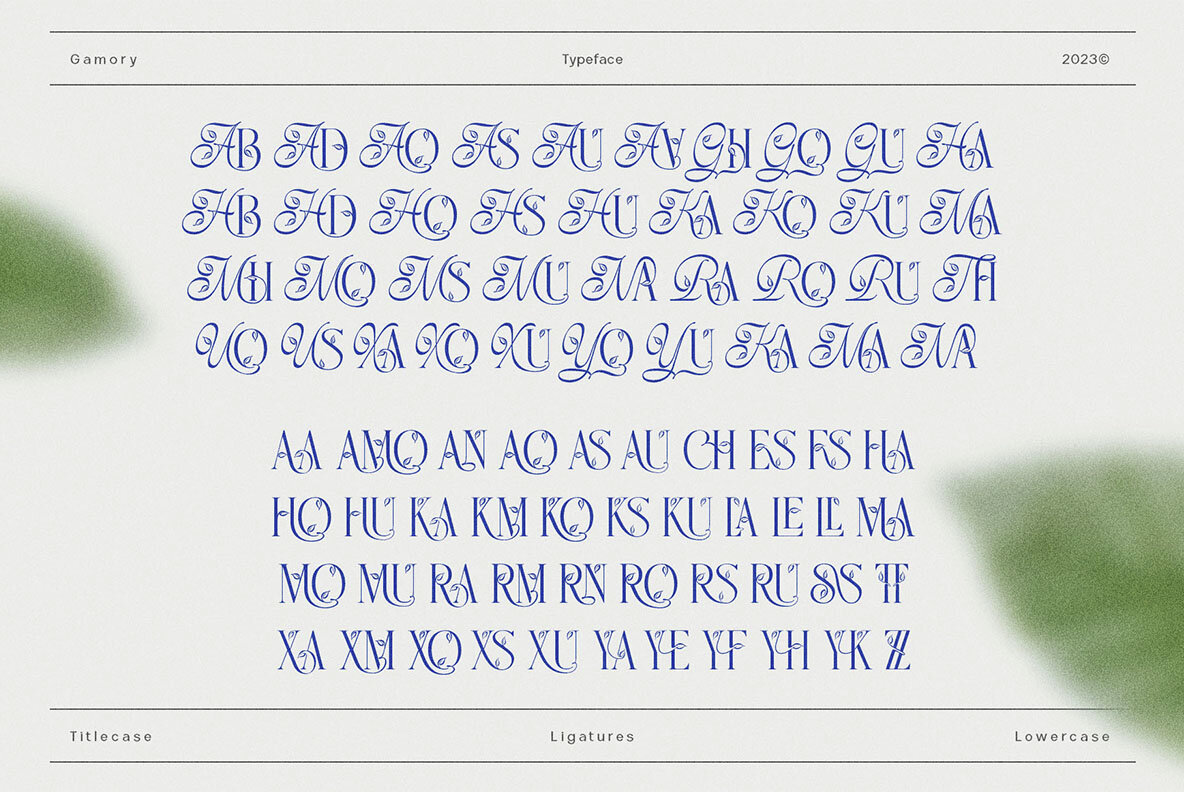 Gamory Typeface 2023©
AB AD AO AS AU AV GH GO GU HA
HB HD HO HS HU KA KO KU MA
MH MO MS MU NA RA RO RU TH
UO US XA XO XU YO YU KA MA NA
AA AMO AN AO AS AU CH ES FS HA
HO HU KA KM KO KS KU LA LE LL MA
MO MU RA RM RN RO RS RU SS TT
XA XM XO XS XU YA YE YF YH YK ZZ
Titlecase Ligatures Lowercase